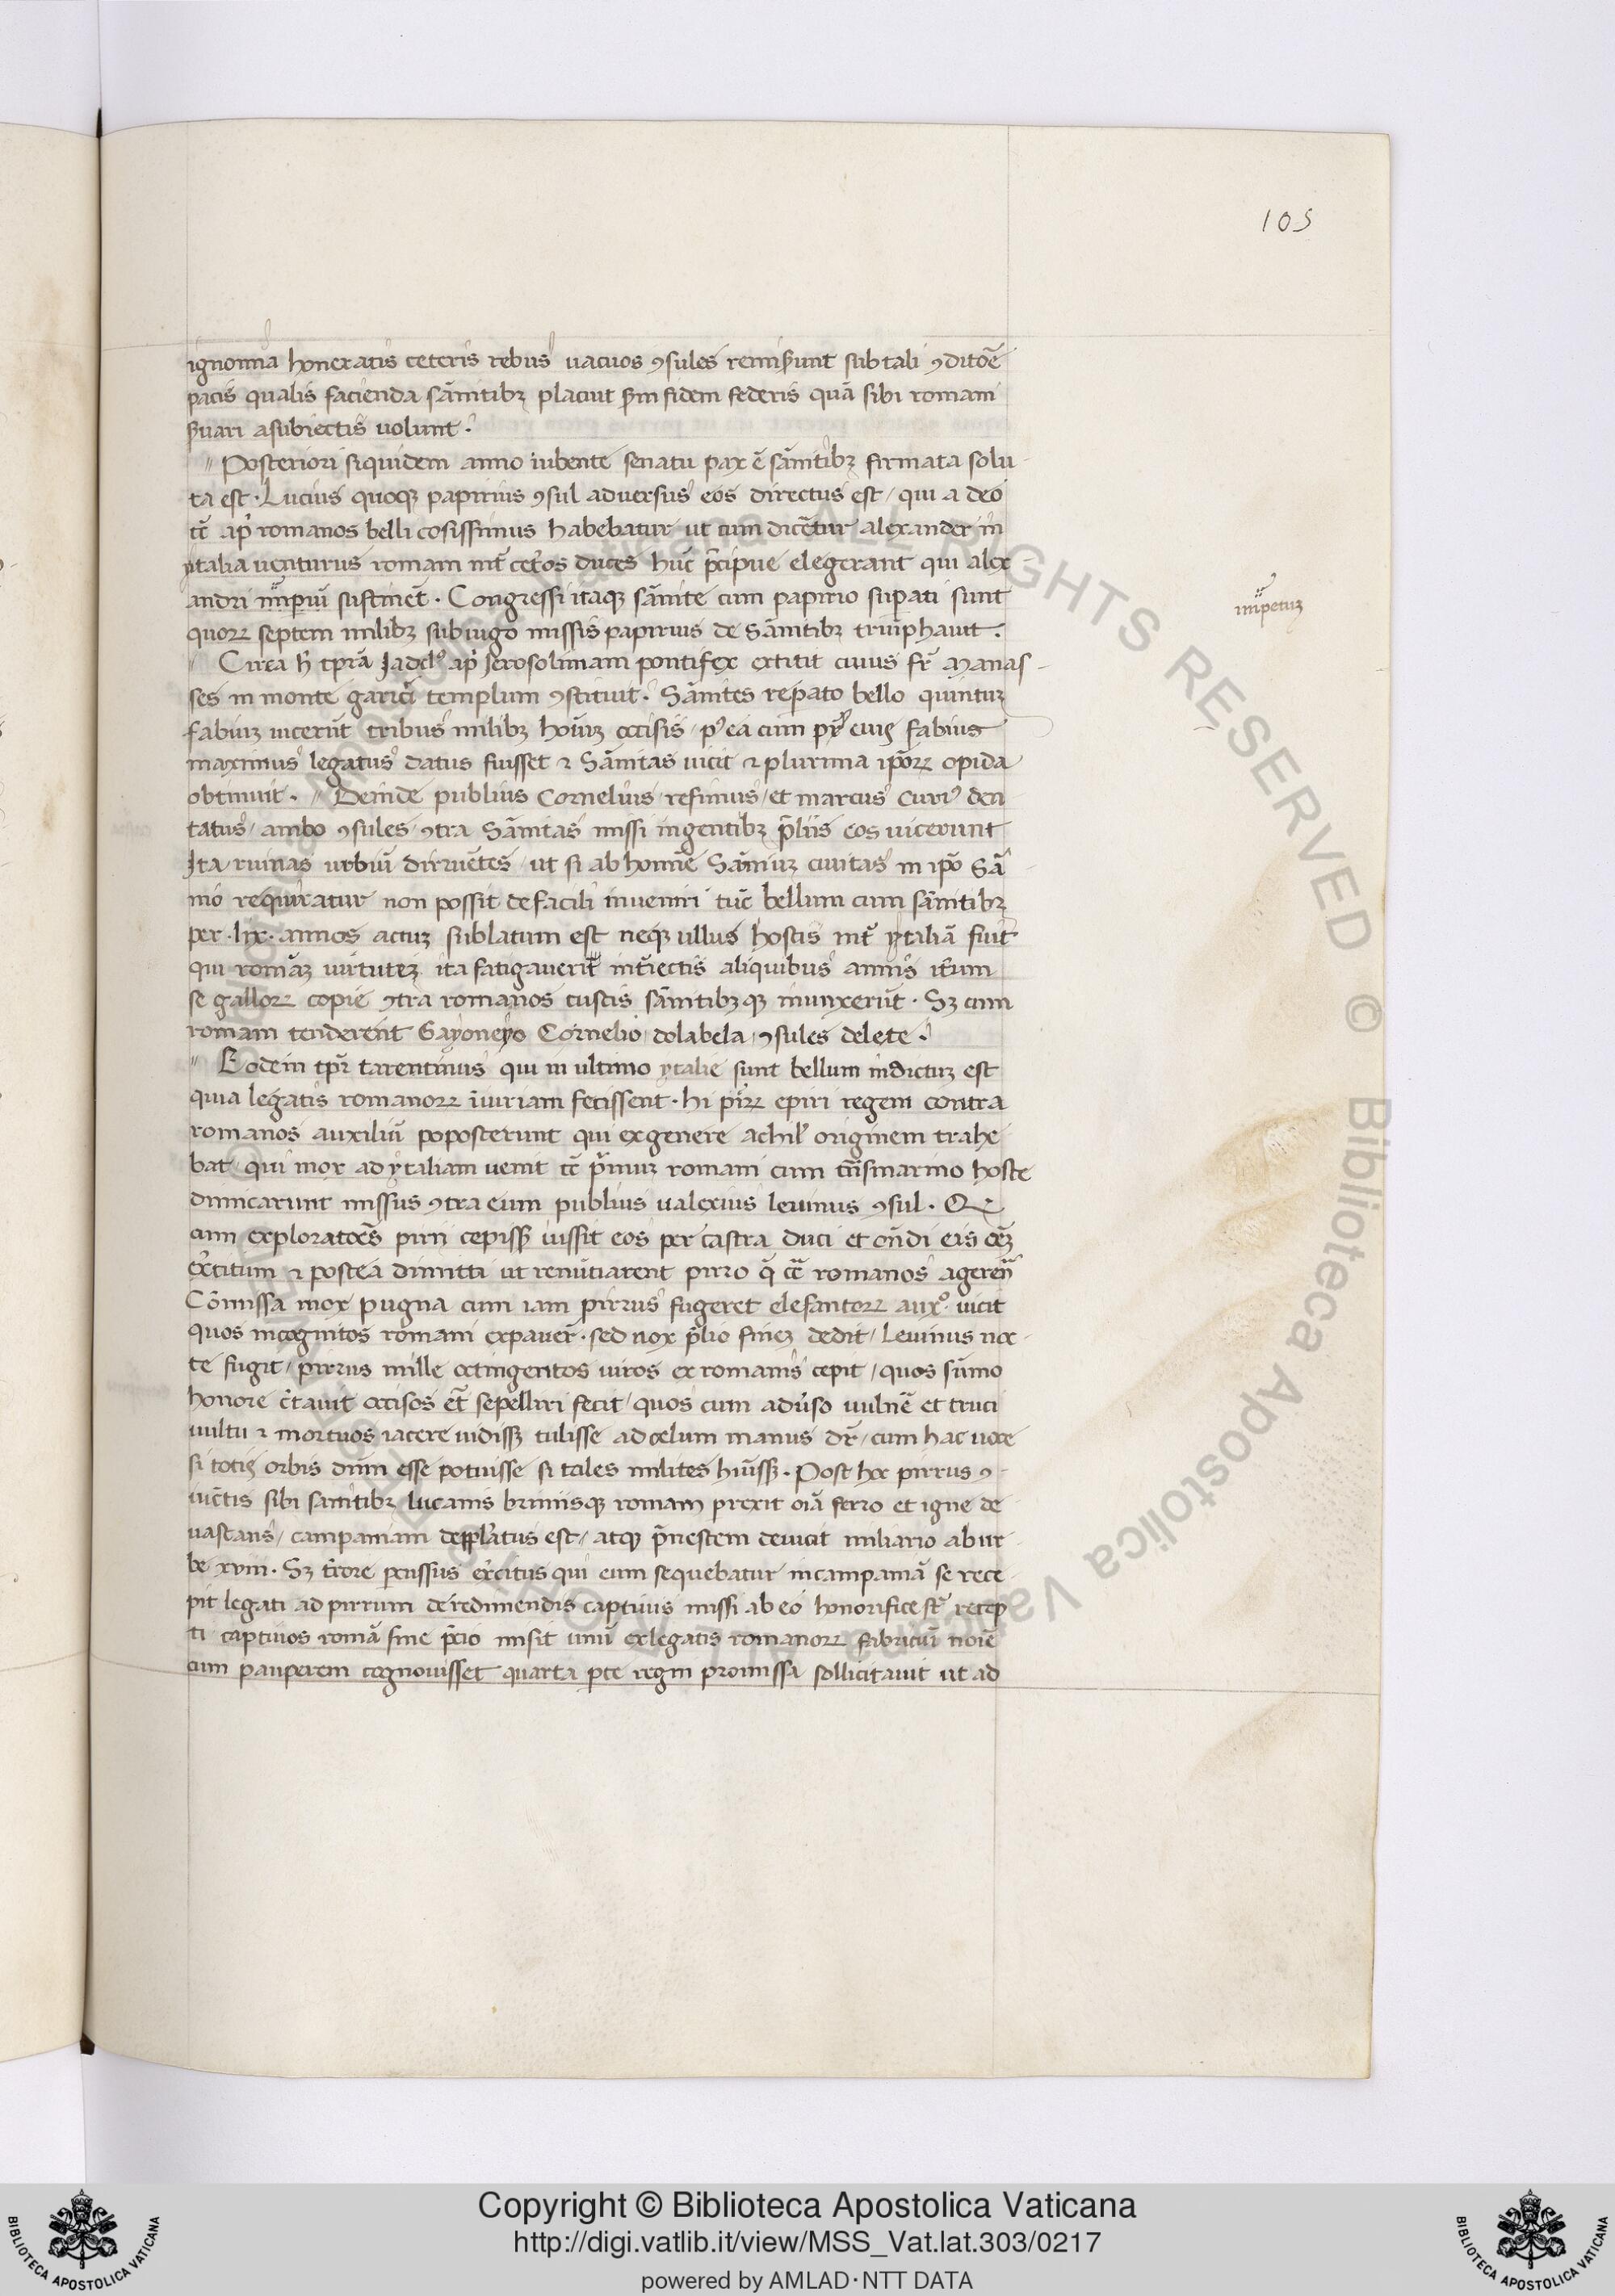 105
ignomia honeratis ceteris rebus uacuos ꝯsules remiẜunt sub tali ꝯditōē
pacis qualis facienda sāmitibꝫ placiut ẜm fidem federis quā sibi romani
ẜuari asubiectis uolunt.
〃Posteriori siquidem anno iubente senatu pax ē sāmitibꝫ firmata solu
ta est. Lucius quoqꝫ papirius ꝯsul aduersus eos directus est / qui a deo
tē ap romanos belli cosissimus habebatur ut cum dicētur alexander in
ytalia uenturus romam int̄ cet̓os duces hūc p̄cipue elegerant qui alex
andri imperiū sustinet̄. Congressi itaqꝫ sāmite cum papirio supati sunt
impetuꝫ
quoꝝ septem milibꝫ sub iugo missis papirius de Sāmitibꝫ triūphauit.
〃Circa h̄ tp̄ra Jadd᷒ ap̓ Jerosolimam pontifex extitit cuius fr̄ Manas
ses in monte garici templum ꝯstituit. Sāmites repato bello quintuꝫ
fabiuꝫ uicerūt tribus milibꝫ hoīuꝫ occisis / p᷒ ea cum pr̄ eiꝰ Fabius
maximus legatus datus fuisset ⁊ Sāmitas uicit ⁊ plurima ip̄oꝝ opida
obtinuit. 〃Deinde publius Cornelius / refinus / et marcus Curi᷒ den
tatus / ambo ꝯsules / ꝯtra Sāmitas missi ingentibꝫ p̄liis eos uicerunt
Ita ruinas urbiū diruētes / ut si ab homīe Sāmiuꝫ ciuitas in ip̄o Sā
mo requiratur non possit de facili inueniri tūc bellum cum sāmitibꝫ
per .lix. annos actuꝫ sublatum est neqꝫ ullus hostis int̄ ytaliā fuit
qui romāꝫ uirtuteꝫ ita fatigauerit int̄iectis aliquibus annis it̄um
se galloꝝ copie ꝯtra romanos tuscis sāmitibꝫqꝫ iniunxerūt. Sꝫ cum
romam tenderent Gayoneyo Cornelio / dolabela / ꝯsules delete.
〃Eodem tp̄r tarentinus qui in ultimo ytalie sunt bellum indictuꝫ est
quia legatis romanoꝝ īiuriam fecissent. hi piꝝ epiri regem contra
romanos auxiliū poposcerunt qui ex genere achil̓ originem trahe
bat / qui mox ad ytaliam uenit tē p̄muꝫ romani cum trāsmarino hoste
dimicarunt missus ꝯtra eum publius ualerius leuinus ꝯsul. Q
cum exploratoēs pirri cepisꝫ iussit eos per castra duci et oñdi eis oēꝫ
ex̓citum ⁊ postea dimitti ut renūtiarent pirro q̄ cū romanos agerent̄
Cōmissa mox pugna cum iam pirrus fugeret elefantoꝝ aux᷒. uicit
quos incognitos romani expauer̄. sed nox p̄lio fineꝫ dedit / Leuinus noc
te fugit / pirrus mille octingentos uiros ex romanis cepit / quos sūmo
honore t̄tauit occisos et̄ sepelliri fecit / quos cum adūso uulnē et truci
uultu ⁊ mortuos iacere uidisꝫ tulisse ad celum manus dr̄ / cum hac uoce
si totiꝰ orbis dūm esse potuisse si tales milites hīuisꝫ. Post hoc pirrus ꝯ
uictis sibi samitibꝫ lucanis brutiisqꝫ romam prexit oīa ferro et igne de
uastans / campaniam depp̄latus est / atqꝫ p̄nestem deuicit miliario ab ur
be xviii. Sꝫ t̄rore pcussus ex̓citus qui eum sequebatur in campaniā se rece
pit legati ad pirrum de redimendis captiuis missi ab eo honorifice st̄ recep
ti captiuos romā sine p̄cio misit unū ex legatis romanoꝝ fabriciū noīe
cum pauperem cognouisset quarta pte regni promissa sollicitauit ut ad
Copyright © Biblioteca Apostolica Vaticana
http://digi.vatlib.it/view/MSS_Vat.lat.303/0217
powered by AMLAD·NTT DATA
BIBLIOTECA APOSTOLICA VATICANA
BIBLIOTECA APOSTOLICA VATICANA